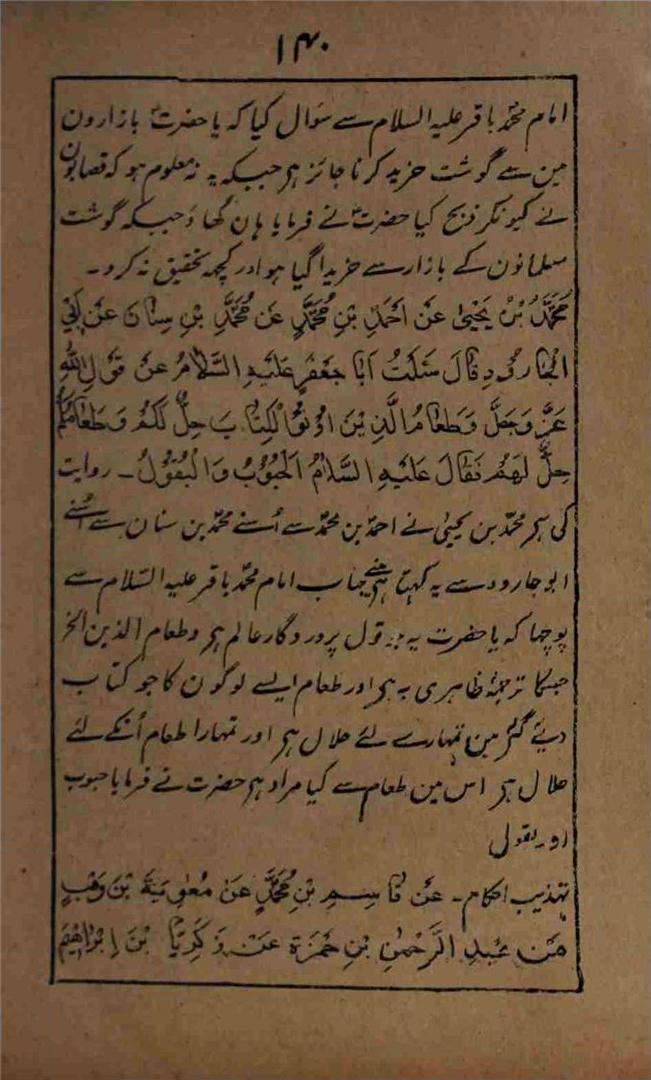 ۱۴۰
امام محمّد باقر علیہ السلام سے سوال کیا کہ یا حضرتؑ بازارون
مین سے گوشت خرید کرنا جائز ہر جبکہ یہ نہ معلوم ہو کہ قصابون
نے کیونکر ذبح کیا حضرتؑ نے فرمایا ہان کھاؤ جبکہ گوشت
مسلمانون کے بازار سے خریدا گیا ہو اور کچھ تحقیق نہ کرو۔
مُحَمَّدُ بْنُ یَحْییٰ عَنْ اَحْمَدَ بْنِ مُحَمَّدٍ عَنْ مُحَمَّدِ بْنِ سِنَانَ عَنْ اَبِی
الْجَارُوْدِ قَالَ سَئَلْتُ اَبَا جَعْفَرٍ عَلَیْہِ السَّلَامُ عَنْ قَوْلِ اللّٰہِ
عَزَّ وَجَلَّ وَطَعَامُ الَّذِیْنَ اُوْتُوا الْکِتَابَ حِلٌّ لَکُمْ وَطَعَامُکُمْ
حِلٌّ لَھُمْ فَقَالَ عَلَیْہِ السَّلَامُ الْحُبُوْبُ وَالْبُقُوْلُ۔ روایت
کی ہر محمّد بن یحییٰ نے احمد بن محمّد سے اُسنے محمّد بن سنان سے اُسنے
ابو جارود سے یہ کہتا ہر مینے جناب امام محمّد باقر علیہ السّلام سے
پوچھا کہ یا حضرت یہ جو قول پروردگار عالم ہر وطعام الذین الخ
جسکا ترجمۂ ظاہری یہ ہر اور طعام ایسے لوگون کا جو کتاب
دیئے گئے ہین تمہارے لئے حلال ہر اور تمہارا طعام اُنکے لئے
حلال ہر اس مین طعام سے کیا مراد ہر حضرت نے فرمایا حبوب
اور بقول
تہذیب احکام۔ عَنْ قَاسِمِ بْنِ مُحَمَّدٍ عَنْ مُعٰوِیَۃَ بْنَ وَھَبٍ
عَنْ عَبْدِ الرَّحْمٰنِ بْنِ حَمْزَۃَ عَنْ زَکَرِیَّا بْنَ اِبْرَاھِیْمَ